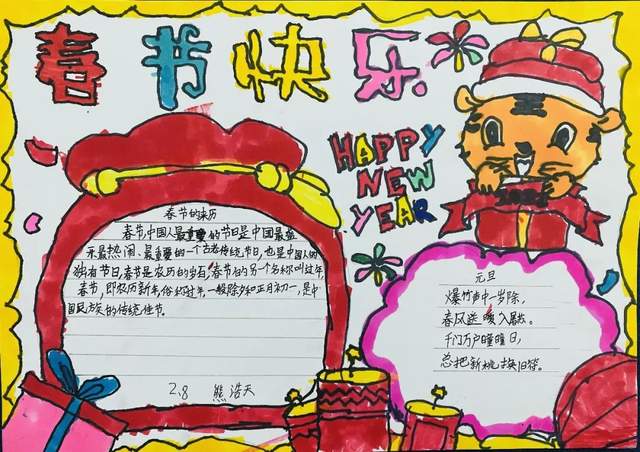 春节快乐
HAPPY
NEW
YEAR
春节的来历
春节,中国人最重要的节日是中国最盛
大最热闹、最重要的一个古老传统节日,也是中国人的
独有节日,春节是农历的岁首,春节的另一个名称叫过年,
春节,即农历新年,俗称过年,一般除夕和正月初一,是中
国民族的传统佳节。
2.8 熊浩天
元旦
爆竹声中一岁除,
春风送暖入屠苏。
千门万户曈曈日,
总把新桃换旧符。